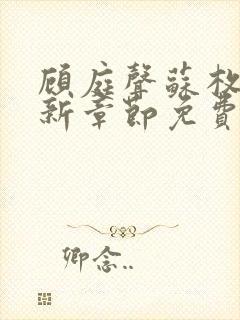 顾庭聲蘇枚
新章節免費
卿念..